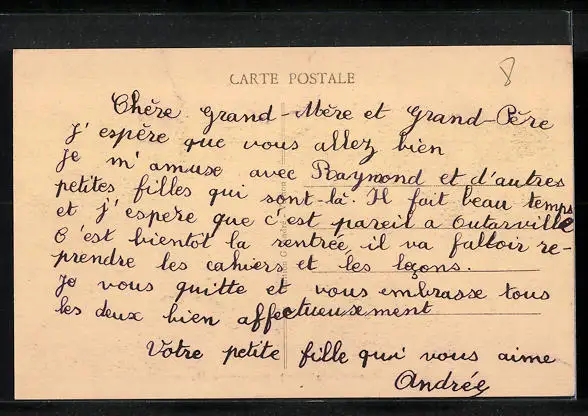 8
CARTE POSTALE
Chère grand-Mère et Grand-Père
J'espère que vous allez bien
Je m'amuse avec Raymond et d'autres
petites filles qui sont-là. Il fait beau temps
et j'espere que c'est pareil a Outarville
C'est bientôt la rentrée il va falloir re-
prendre les cahiers et les leçons.
Je vous quitte et vous embrasse tous
les deux bien affectueusement
Votre petite fille qui vous aime
Andrée